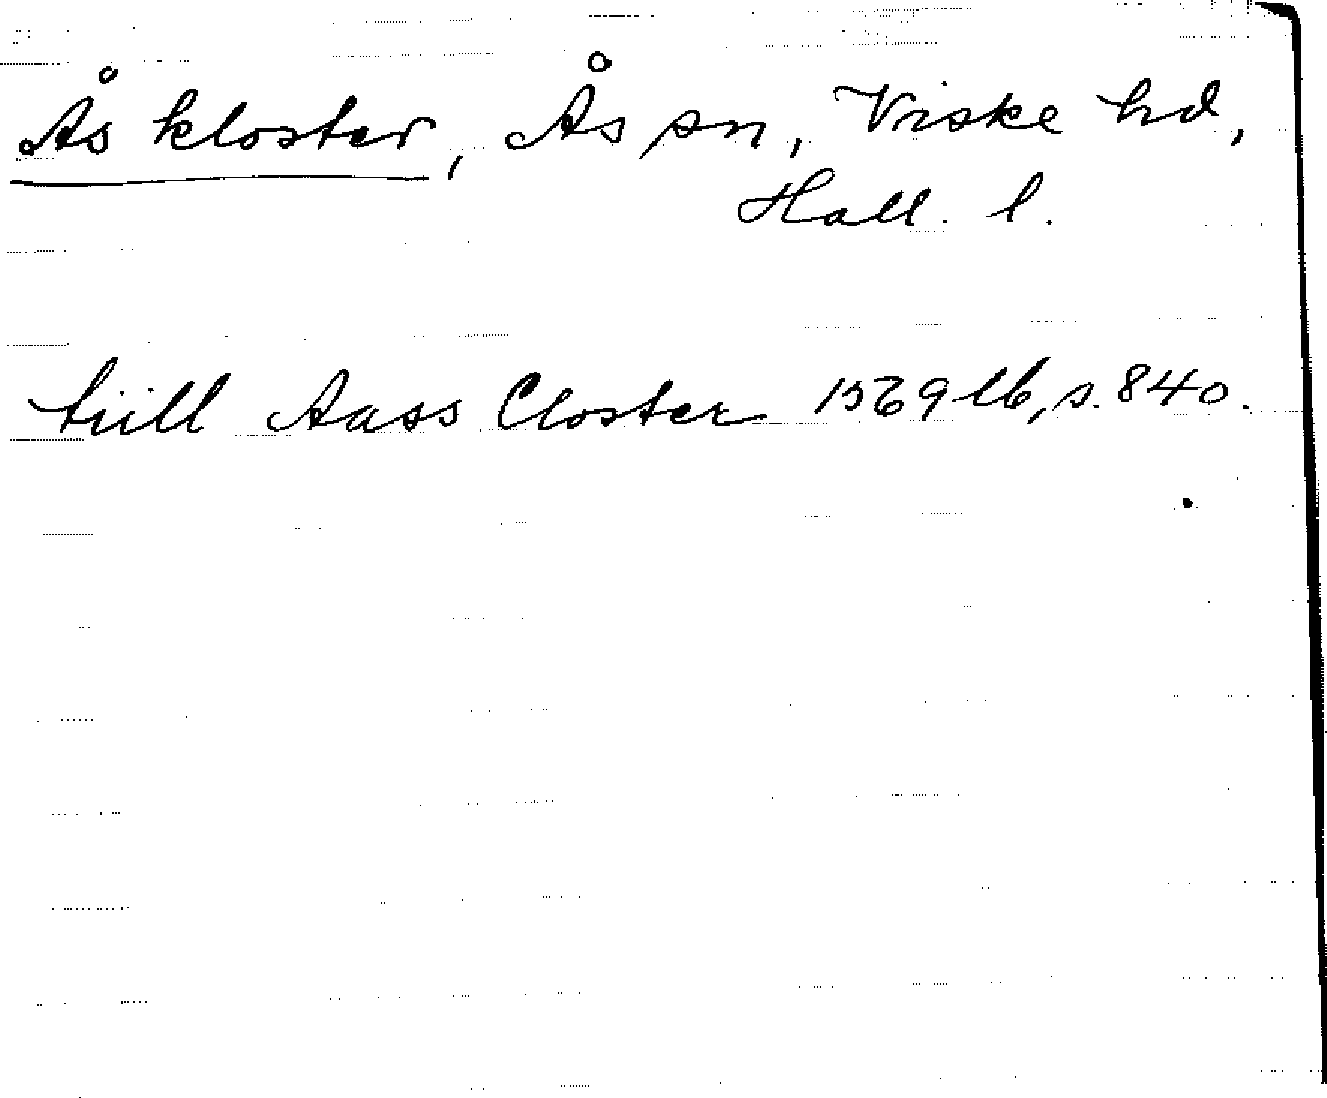 Ås kloster, Ås sn, Viske hd,
Hall. l.
tiill Aass Closter 1569 lb, s. 840.